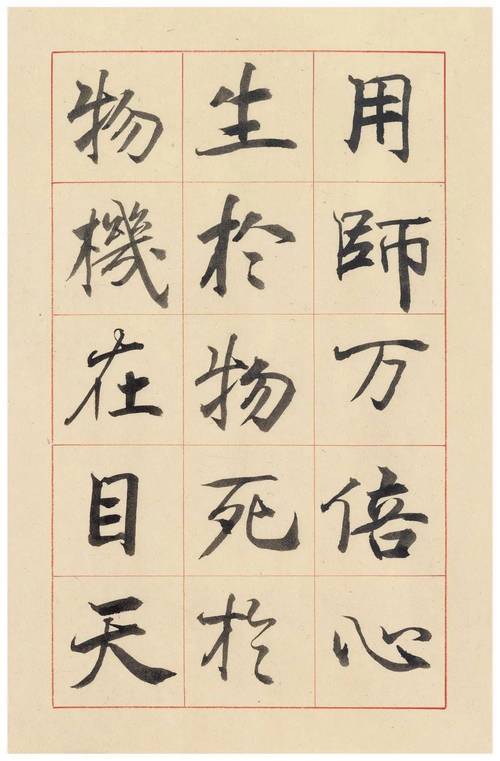 用師万倍心
生於物死於
物機在目天